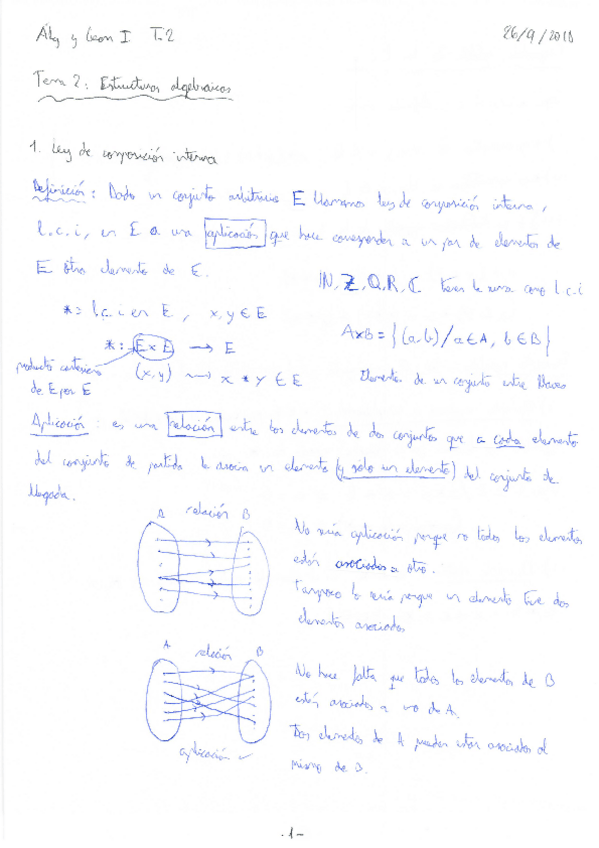 Álg y Geom I T.2 26/9/2018
Tema 2: Estructuras algebraicas
1. Ley de composición interna
Definición: Dado un conjunto arbitrario E llamamos ley de composición interna,
l.c.i, en E a una aplicación que hace corresponder a un par de elementos de
E otro elemento de E.
ℕ, ℤ, ℚ, ℝ, ℂ tienen la suma como l.c.i
*: l.c.i en E, x, y ∈ E
*: E x E → E
A×B = {(a,b) / a ∈ A, b ∈ B}
producto cartesiano
de E por E
(x,y) ⟿ x * y ∈ E
Elementos de un conjunto entre llaves
Aplicación: es una relación entre los elementos de dos conjuntos que a cada elemento
del conjunto de partida le asocia un elemento (y sólo un elemento) del conjunto de
llegada.
A relación B
No sería aplicación porque no todos los elementos
están asociados a otro.
Tampoco lo sería porque un elemento tiene dos
elementos asociados
A relación B
aplicación ✓
No hace falta que todos los elementos de B
estén asociados a uno de A.
Dos elementos de A pueden estar asociados al
mismo de B.
-1-